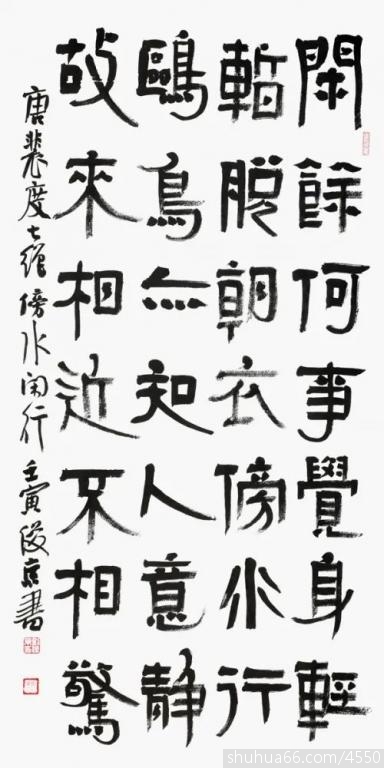 閑餘何事覺身輕
暫脫朝衣傍水行
鷗鳥亦知人意静
故來相近不相驚
唐裴度七絕傍水闲行 壬寅 書
shuhua66.com/4550